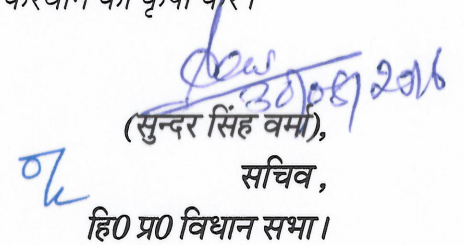 करवाने की कृपा करें।
30/08/2016
(सुन्दर सिंह वर्मा),
सचिव ,
हि0 प्र0 विधान सभा।